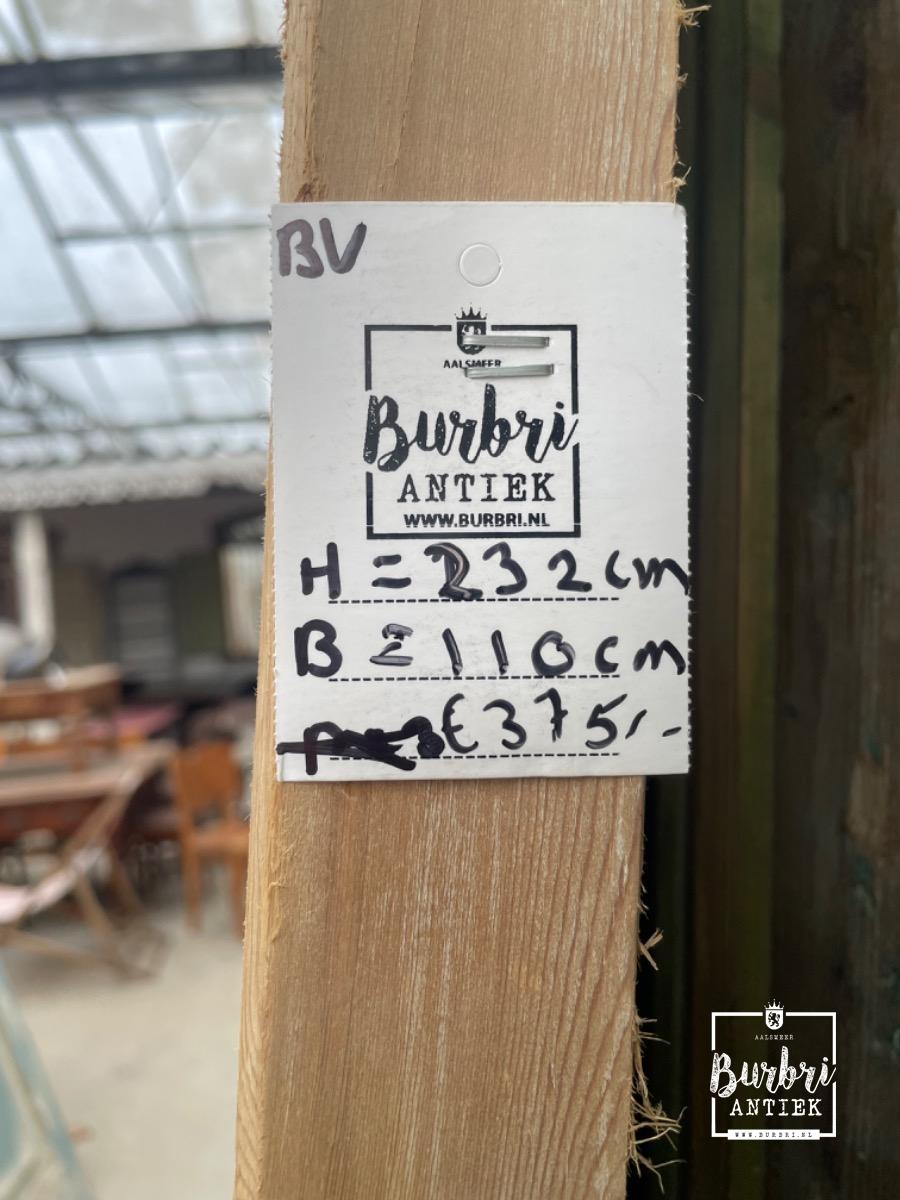 BV
AALSMEER
Burbri
ANTIEK
WWW.BURBRI.NL
H = 232 cm
B = 110 cm
€ 375,-
AALSMEER
Burbri
ANTIEK
WWW.BURBRI.NL